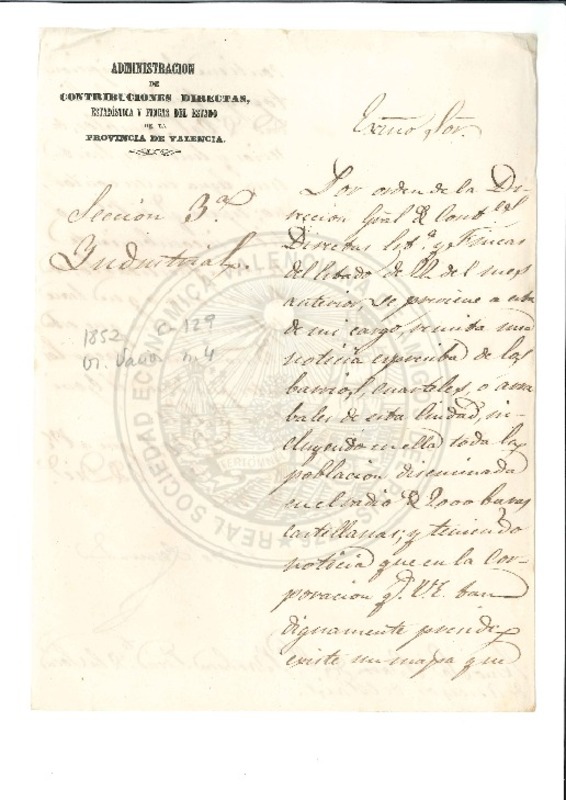 ADMINISTRACION
DE
CONTRIBUCIONES DIRECTAS,
ESTADISTICA Y FINCAS DEL ESTADO
DE LA
PROVINCIA DE VALENCIA.
Sección 3ª
Industrial.
1852 C-129
VI. Varios n. 4
Exmo Sor.
Por orden de la Di-
reccion Gral de Contres
Directas Est.ª y Fincas
del Estado de 22 del mes
anterior, se previene a esta
de mi cargo remita una
noticia espresiba de los
barrios, cuarteles, o arra
bales de esta Ciudad, in-
cluyendo en ella toda la
población diseminada
en el radio de 2000 baras
castillanas; y teniendo
noticia que en la Cor-
poracion q.e V.E. tan
dignamente preside
existe un mapa que
REAL SOCIEDAD ECONOMICA VALENCIANA DE AMIGOS DEL PAIS